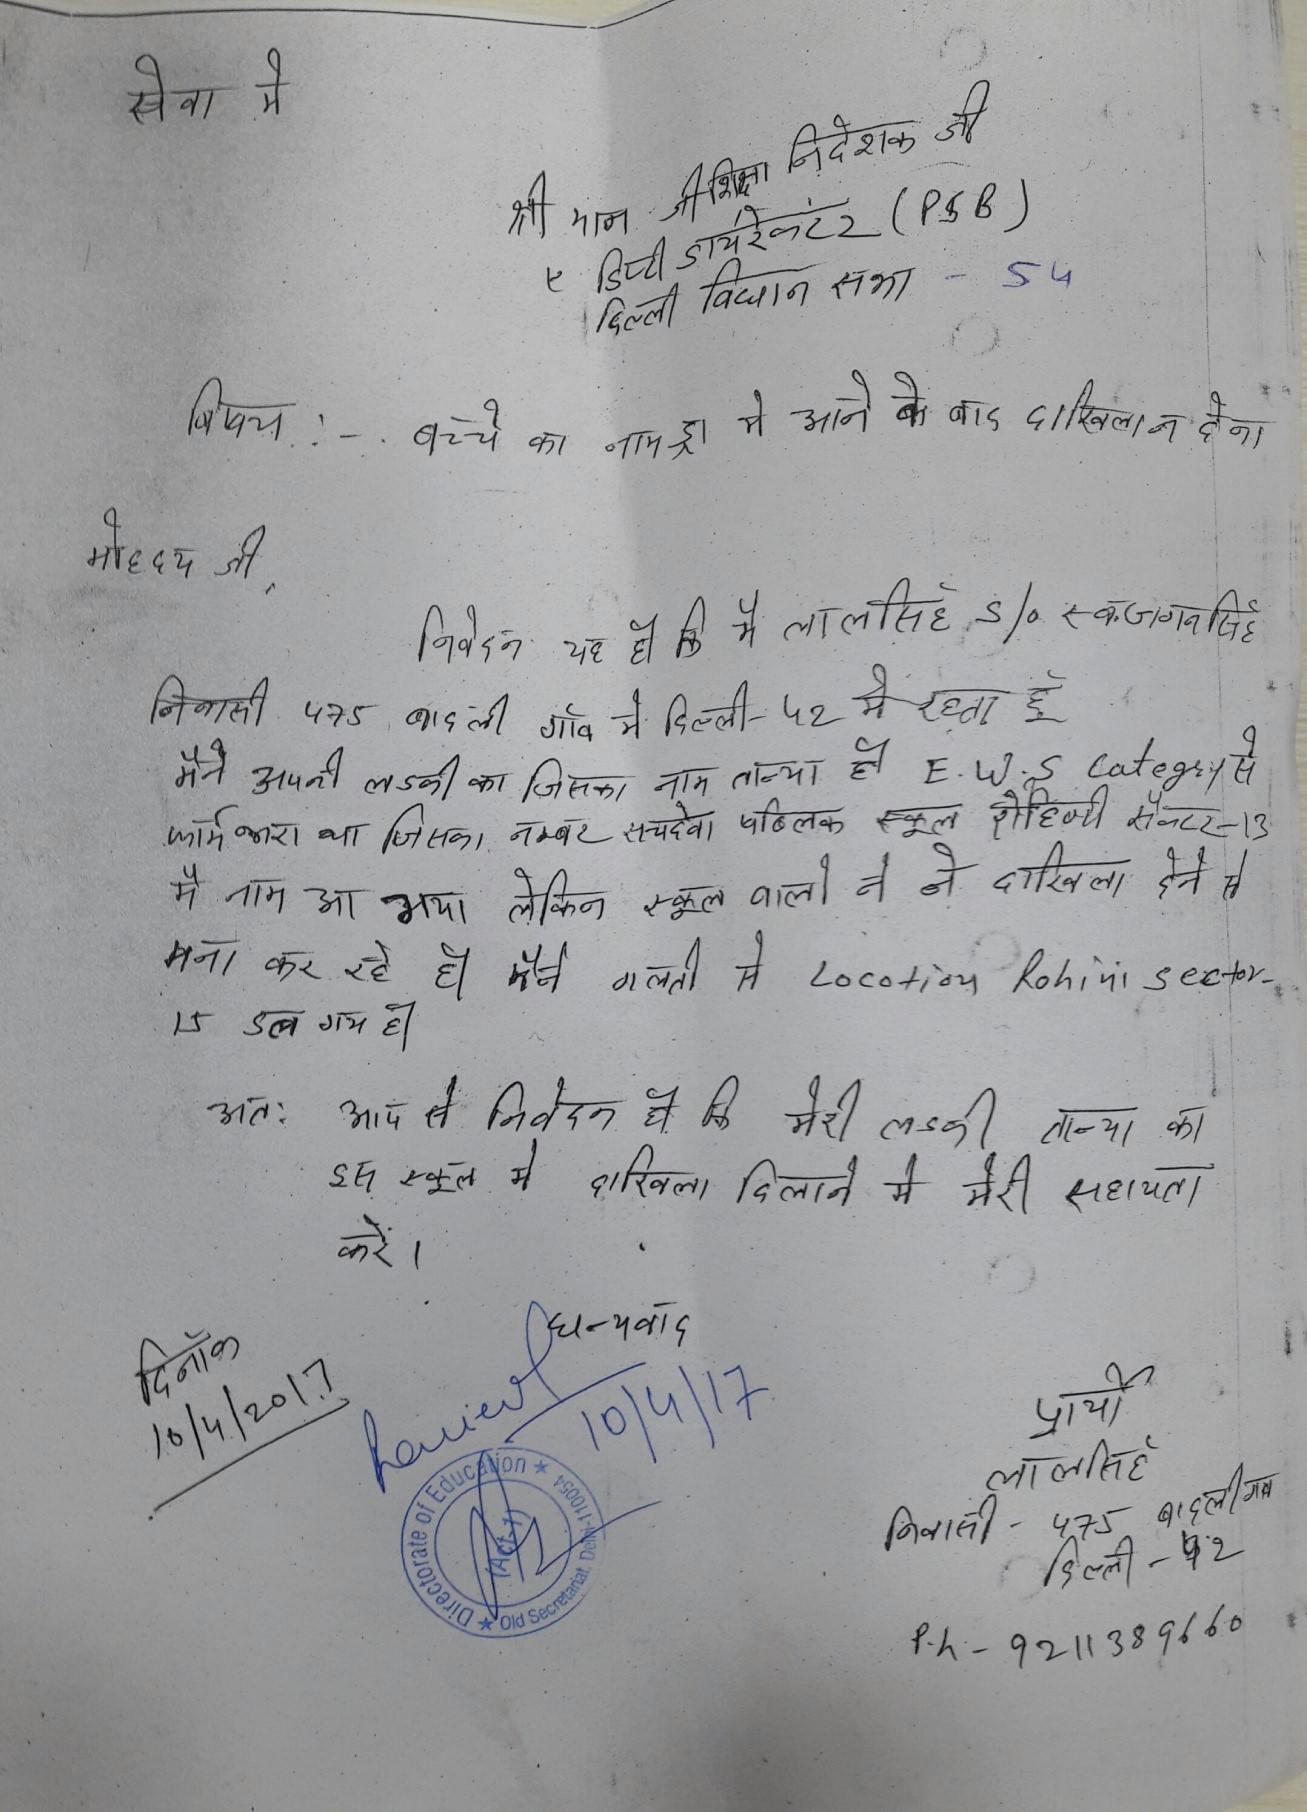 सेवा मे
श्री मान जी शिक्षा निदेशक जी
ए डिप्टी डायरेक्टर (PSB)
दिल्ली विधान सभा - 54
विषय :- बच्चे का नाम ड्रा मे आने के बाद दाखिला न देना
मोहदय जी,
निवेदन यह है कि मै लालसिहं S/o स्व. जगनसिहं
निवासी 475 बादली गाँव मे दिल्ली-42 मे रहता हूँ
मैने अपनी लडकी का जिसका नाम तान्या है E.W.S Category से
फार्म भरा था जिसका नम्बर सचदेवा पब्लिक स्कूल रोहिणी सैक्टर-13
मै नाम आ गया लेकिन स्कूल वालो ने ने दाखिला देने से
मना कर रहे है मैने गलती से Location Rohini Sector-
15 डल गय है
अतः आप से निवेदन है कि मेरी लडकी तान्या का
इस स्कूल मे दाखिला दिलाने मे मेरी सहायता
करें।
धन्यवाद
दिनाँक
10/4/2017
10/4/17
Directorate of Education
(Act-1)
Old Secretariat, Delhi-110054
प्रार्थी
लालसिहं
निवासी - 475 बादली गाव
दिल्ली - 42
P.h - 9211389660